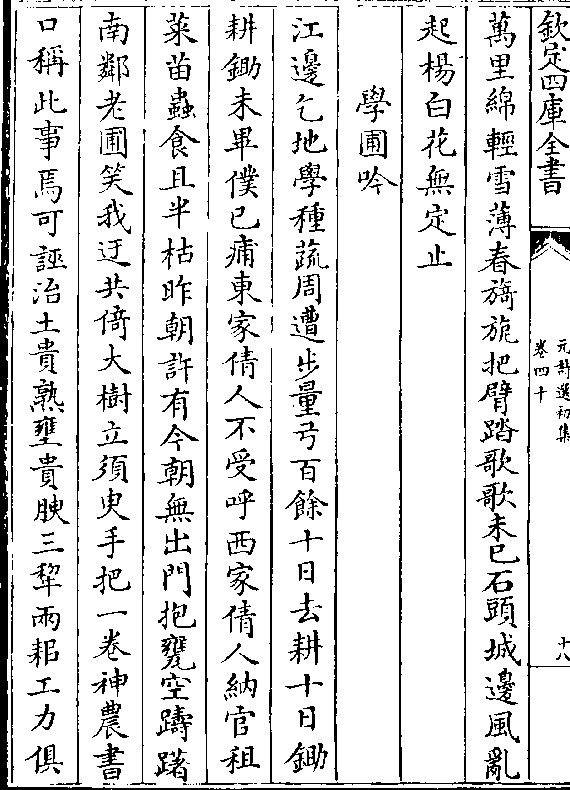 欽定四庫全書
元詩選初集
卷四十
十八
萬里綿輕雪薄春旖旎把臂踏歌歌未已石頭城邊風亂
起楊白花無定止
學圃吟
江邊乞地學種蔬周遭步量弓百餘十日去耕十日鋤
耕鋤未畢僕已痡東家倩人不受呼西家倩人納官租
菜苗蟲食且半枯昨朝許有今朝無出門抱甕空躊躇
南鄰老圃笑我迂共倚大樹立須臾手把一卷神農書
口稱此事焉可誣治土貴熟壅貴腴三犂兩耜工力俱